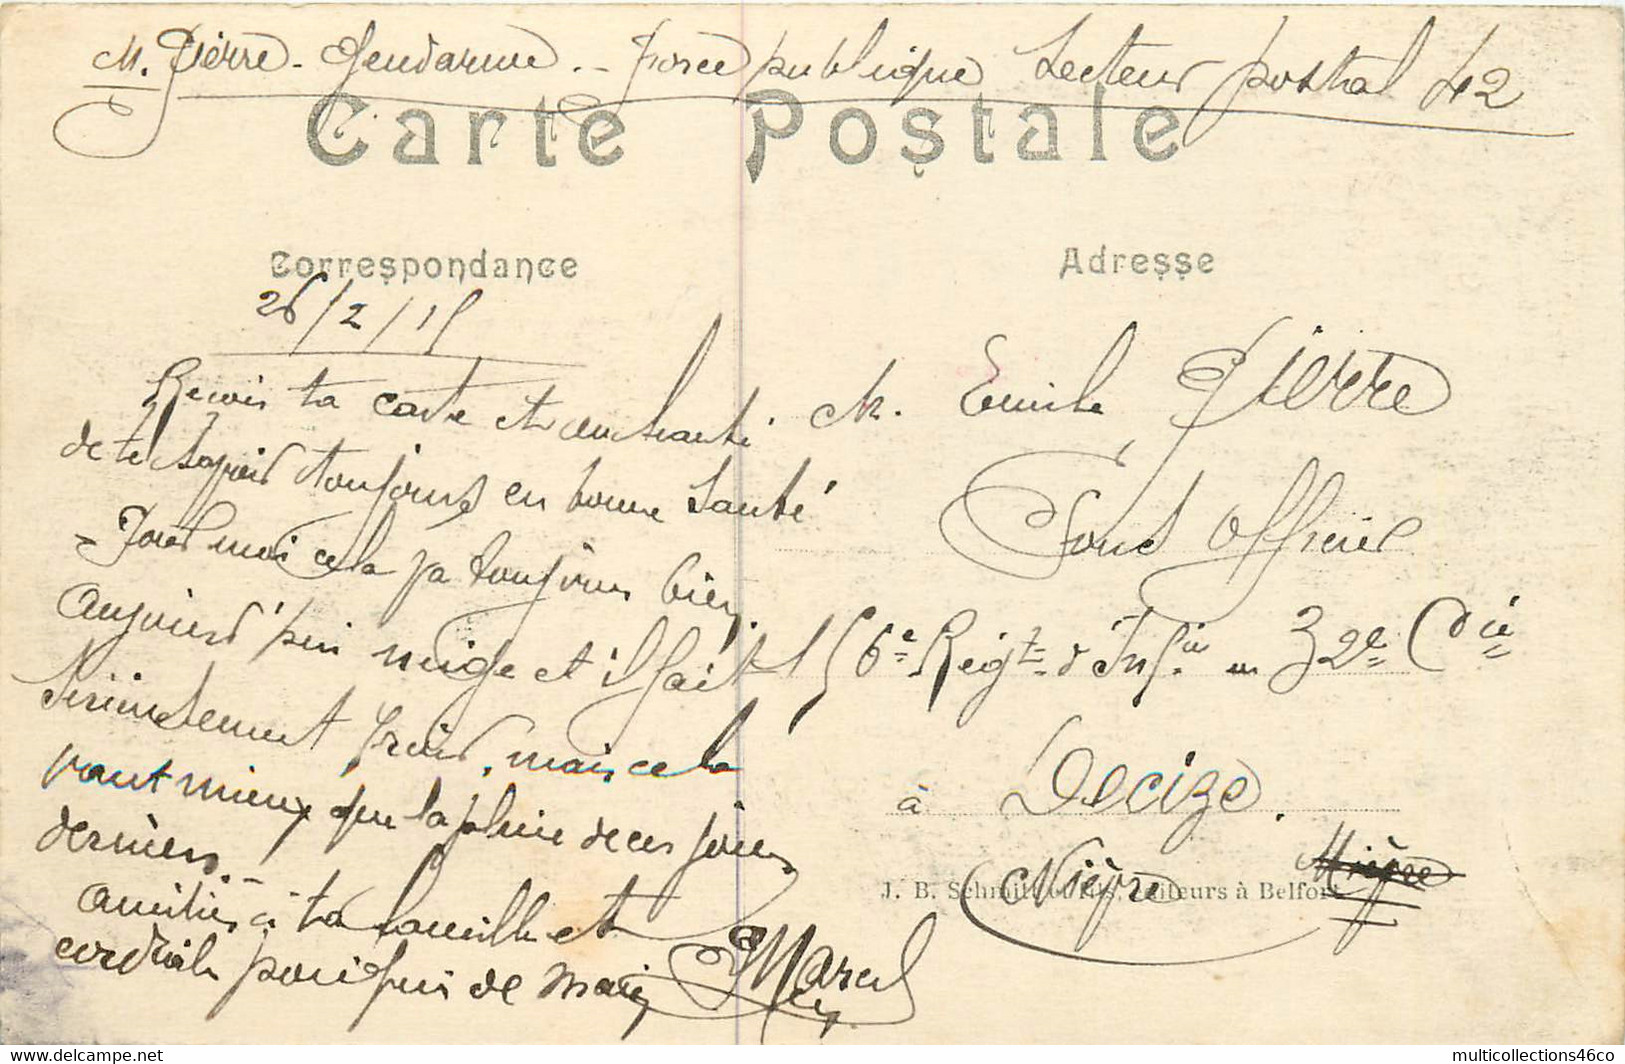 M. Pierre - Gendarme. - Force publique Secteur postal 42
Carte Postale
Correspondance
Adresse
26/2/15
Reçois ta carte et enchanté
de te savoir toujours en bonne santé
- Pour moi cela va toujours bien,
aujourd'hui neige et il fait
froid, mais cela
vaut mieux que la pluie de ces jours
derniers. -
Amitiés à ta famille et
cordiale poignée de main
Marcel
M. Emile Pierre
Sous Officier
156e Régt d'Infie 32e Cie
à Decize.
Nièvre
Nièvre
J. B. Schmitt et fils, éditeurs à Belfort
multicollections46co